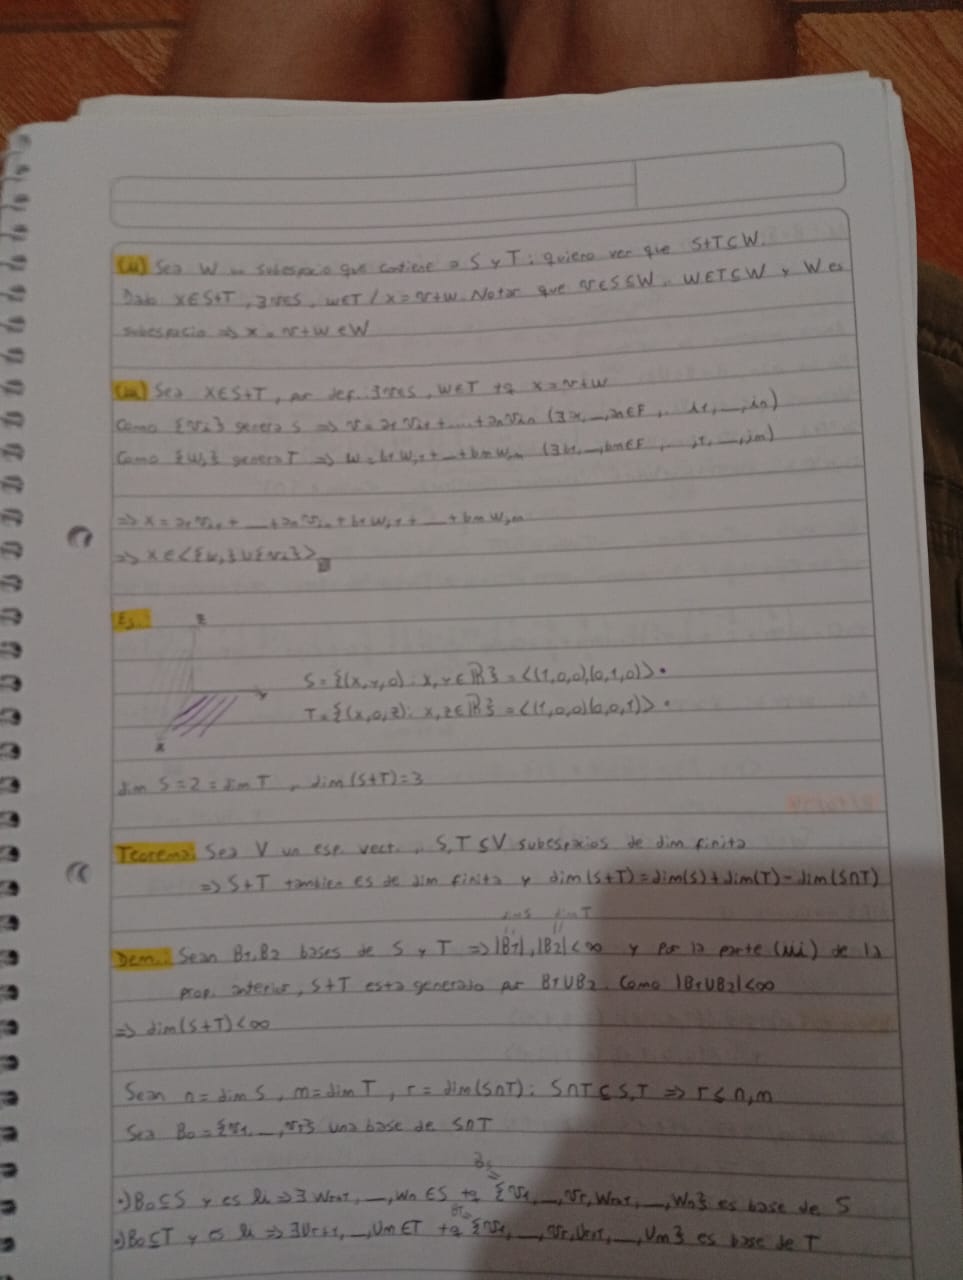 (ii) Sea W un subespacio que contiene a S y T: quiero ver que S+T⊂W.
Dado x∈S+T, ∃v∈S, w∈T / x=v+w. Notar que v∈S⊆W, w∈T⊆W y W es
subespacio ⇒ x=v+w∈W
(iii) Sea x∈S+T, por def. ∃v∈S, w∈T tq x=v+w
Como {vᵢ} genera S ⇒ v=a₁vᵢ₁+...+aₙvᵢₙ (∃a₁,_,aₙ∈F, i₁,_,iₙ)
Como {wⱼ} genera T ⇒ w=b₁wⱼ₁+_+bₘwⱼₘ (∃b₁,_,bₘ∈F, j₁,_,jₘ)
⇒ x=a₁vᵢ₁+_+aₙvᵢₙ+b₁wⱼ₁+_+bₘwⱼₘ
⇒ x∈<{wⱼ}∪{vᵢ}>
Ej.:
z
S={(x,y,0): x,y∈ℝ}=<(1,0,0)(0,1,0)>.
T={(x,0,z): x,z∈ℝ}=<(1,0,0)(0,0,1)>.
x
dim S=2=dim T, dim(S+T)=3
Teorema: Sea V un esp. vect., S,T⊆V subespacios de dim finita
⇒ S+T tambien es de dim finita y dim(S+T)=dim(S)+dim(T)-dim(S∩T)
dim S dim T
Dem.: Sean B1,B2 bases de S y T ⇒ |B1|,|B2|<∞ y por la parte (iii) de la
prop. anterior, S+T esta generado por B1∪B2. Como |B1∪B2|<∞
⇒ dim(S+T)<∞
Sean n=dim S, m=dim T, r=dim(S∩T): S∩T⊆S,T ⇒ r≤n,m
Sea B₀={v₁,_,vᵣ} una base de S∩T
Bs
•) B₀⊆S y es li ⇒ ∃wᵣ₊₁,_,wₙ∈S tq {v₁,_,vᵣ,wᵣ₊₁,_,wₙ} es base de S
BT
•) B₀⊆T y es li ⇒ ∃uᵣ₊₁,_,uₘ∈T tq {v₁,_,vᵣ,uᵣ₊₁,_,uₘ} es base de T